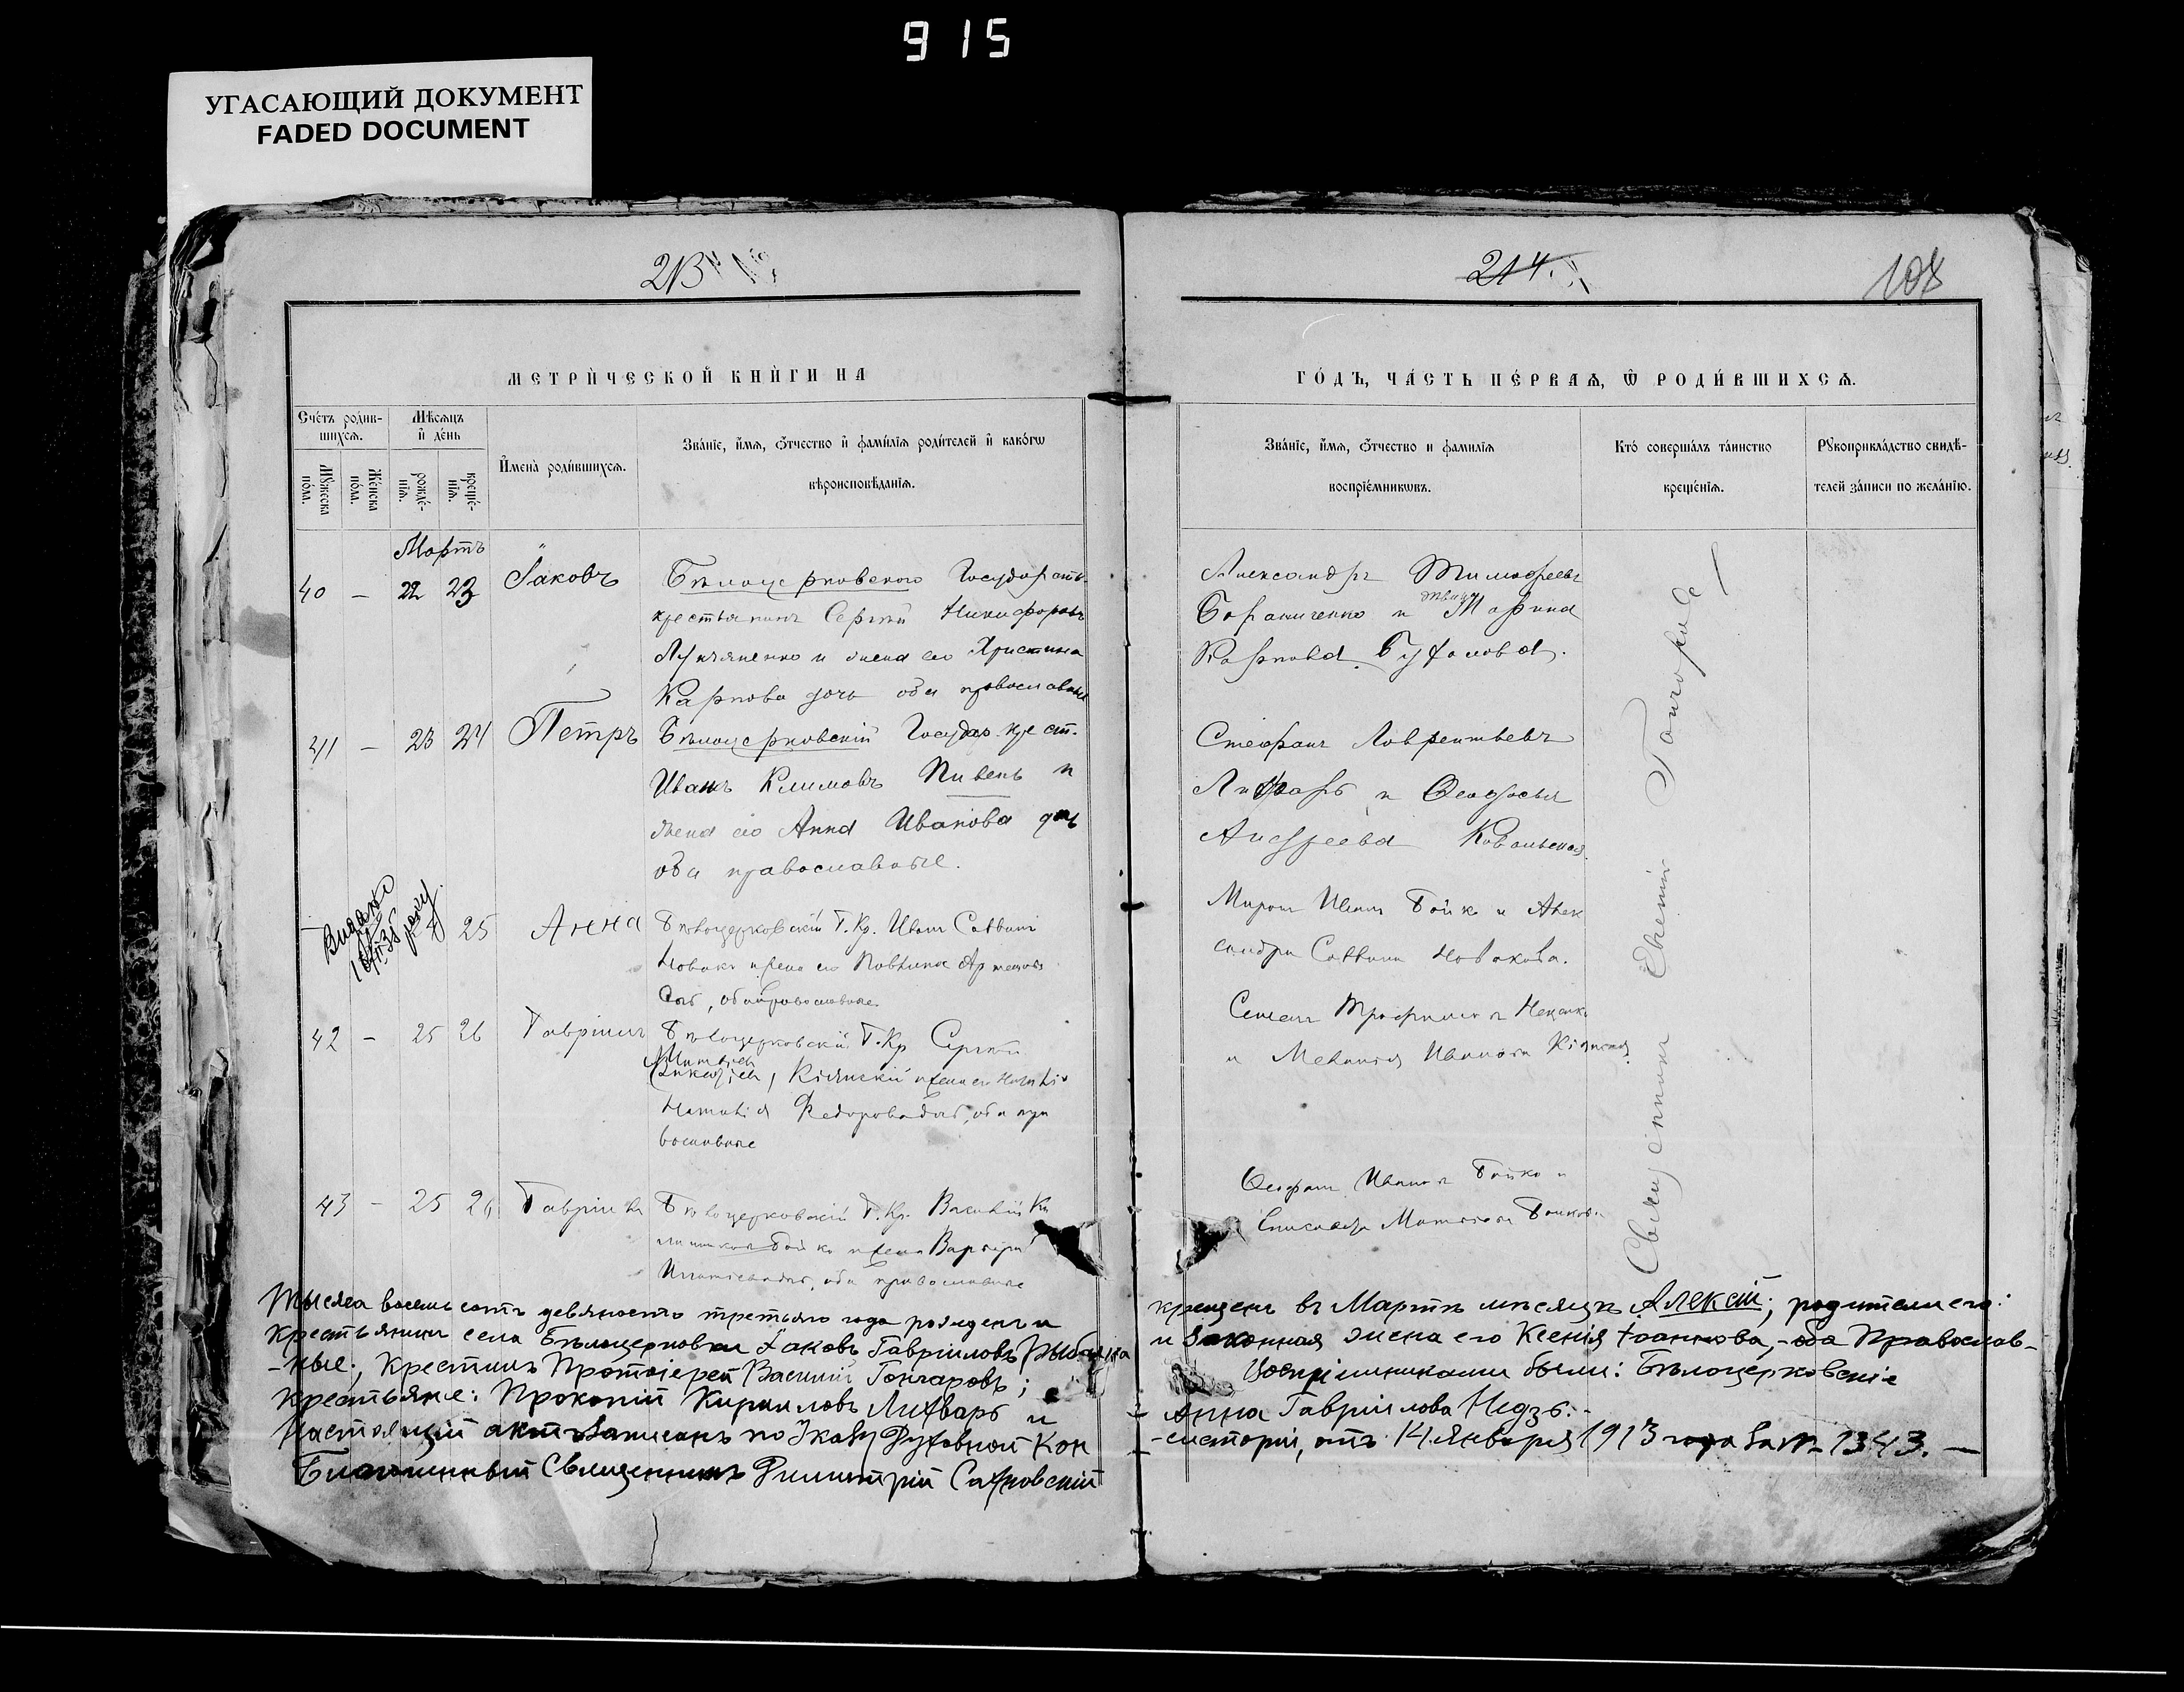 915
УГАСАЮЩИЙ ДОКУМЕНТ
FADED DOCUMENT
213
214.
108
МЕТРИ́ЧЕСКОЙ КНИ́ГИ НА
ГО́ДЪ, ЧА́СТЬ ПЕ́РВАѦ, Ѿ РОДИ́ВШИХСѦ.
Сче́тъ роди́в-
шихсѧ.
Мѣ́сѧцъ
и҆ де́нь
Мꙋ́жеска
по́ла.
Же́нска
по́ла.
рожде́-
нїѧ.
креще́-
нїѧ.
И҆мена̀ роди́вшихсѧ.
Зва́нїе, и҆́мѧ, ѻ҆́тчество и҆ фами́лїѧ роди́телей и҆ како́гѡ
вѣроисповѣ́данїѧ.
Зва́нїе, и҆́мѧ, ѻ҆́тчество и фами́лїѧ
воспрїе́мникѡвъ.
Кто́ соверша́лъ та́инство
креще́нїѧ.
Рꙋкоприкла́дство свидѣ́-
телей за́писи по жела́нїю.
Мартъ
40 — 22 23 Іаковъ
Бѣлоцерковского Государств.
крестьянинъ Сергѣй Никифоровъ
Лукьяненко и жена его Христина
Карпова дочь оба православные
Александръ Тимофеевъ
и Марина
Карпова
41 — 23 24 Петръ
Бѣлоцерковскій Государ. крест.
Иванъ Климовъ Пивень и
жена его Анна Иванова дочь
оба православные.
Стефанъ Лаврентьевъ
Лихваръ и Феодосья
Андреева Ковальская.
Видано
35 року
— 25 Анна
Бѣлоцерковскій Г. Кр. Иванъ Саввинъ
Новакъ и жена его Павлина Артемова
дочь, оба православные
Миронъ Иванъ Бойко и Алек
сандра Саввина Новакова.
42 — 25 26 Гавріилъ
Бѣлоцерковскій Г. Кр. Сергѣй
Кіянскій и жена его
Наталія Федорова дочь, оба пра
вославные
Семенъ Трофимовъ
и Меланія Иванова Кіянская.
43 — 25 26 Гавріилъ
Бѣлоцерковскій Г. Кр. Василій
Бойко и жена Варвара
Игнатьева дочь, оба православные
Иванов Бойко и
Елисавета Бойкова
Священникъ Евгеній
Тысяча восемьсотъ девяносто третьяго года рожденъ и
крещенъ въ Мартѣ мѣсяцѣ Алексій; родители его:
Крестьянинъ села Бѣлоцерковки Іаковъ Гавріиловъ Рыбалка
и Законная жена его Ксенія Іоаннова, - оба Православ-
-ные; Крестилъ Протоіерей Василій Гончаровъ;
Воспріемниками были: Бѣлоцерковскіе
Крестьяне: Прокопій Кирилловъ Лихваръ и
Анна Гавріилова Недзъ.-
Настоящій актъ Записанъ по Указу Духовной Кон
-систоріи, отъ 14 Января 1913 года за № 1343. —
Благочинный Священникъ Димитрій Сахновскій